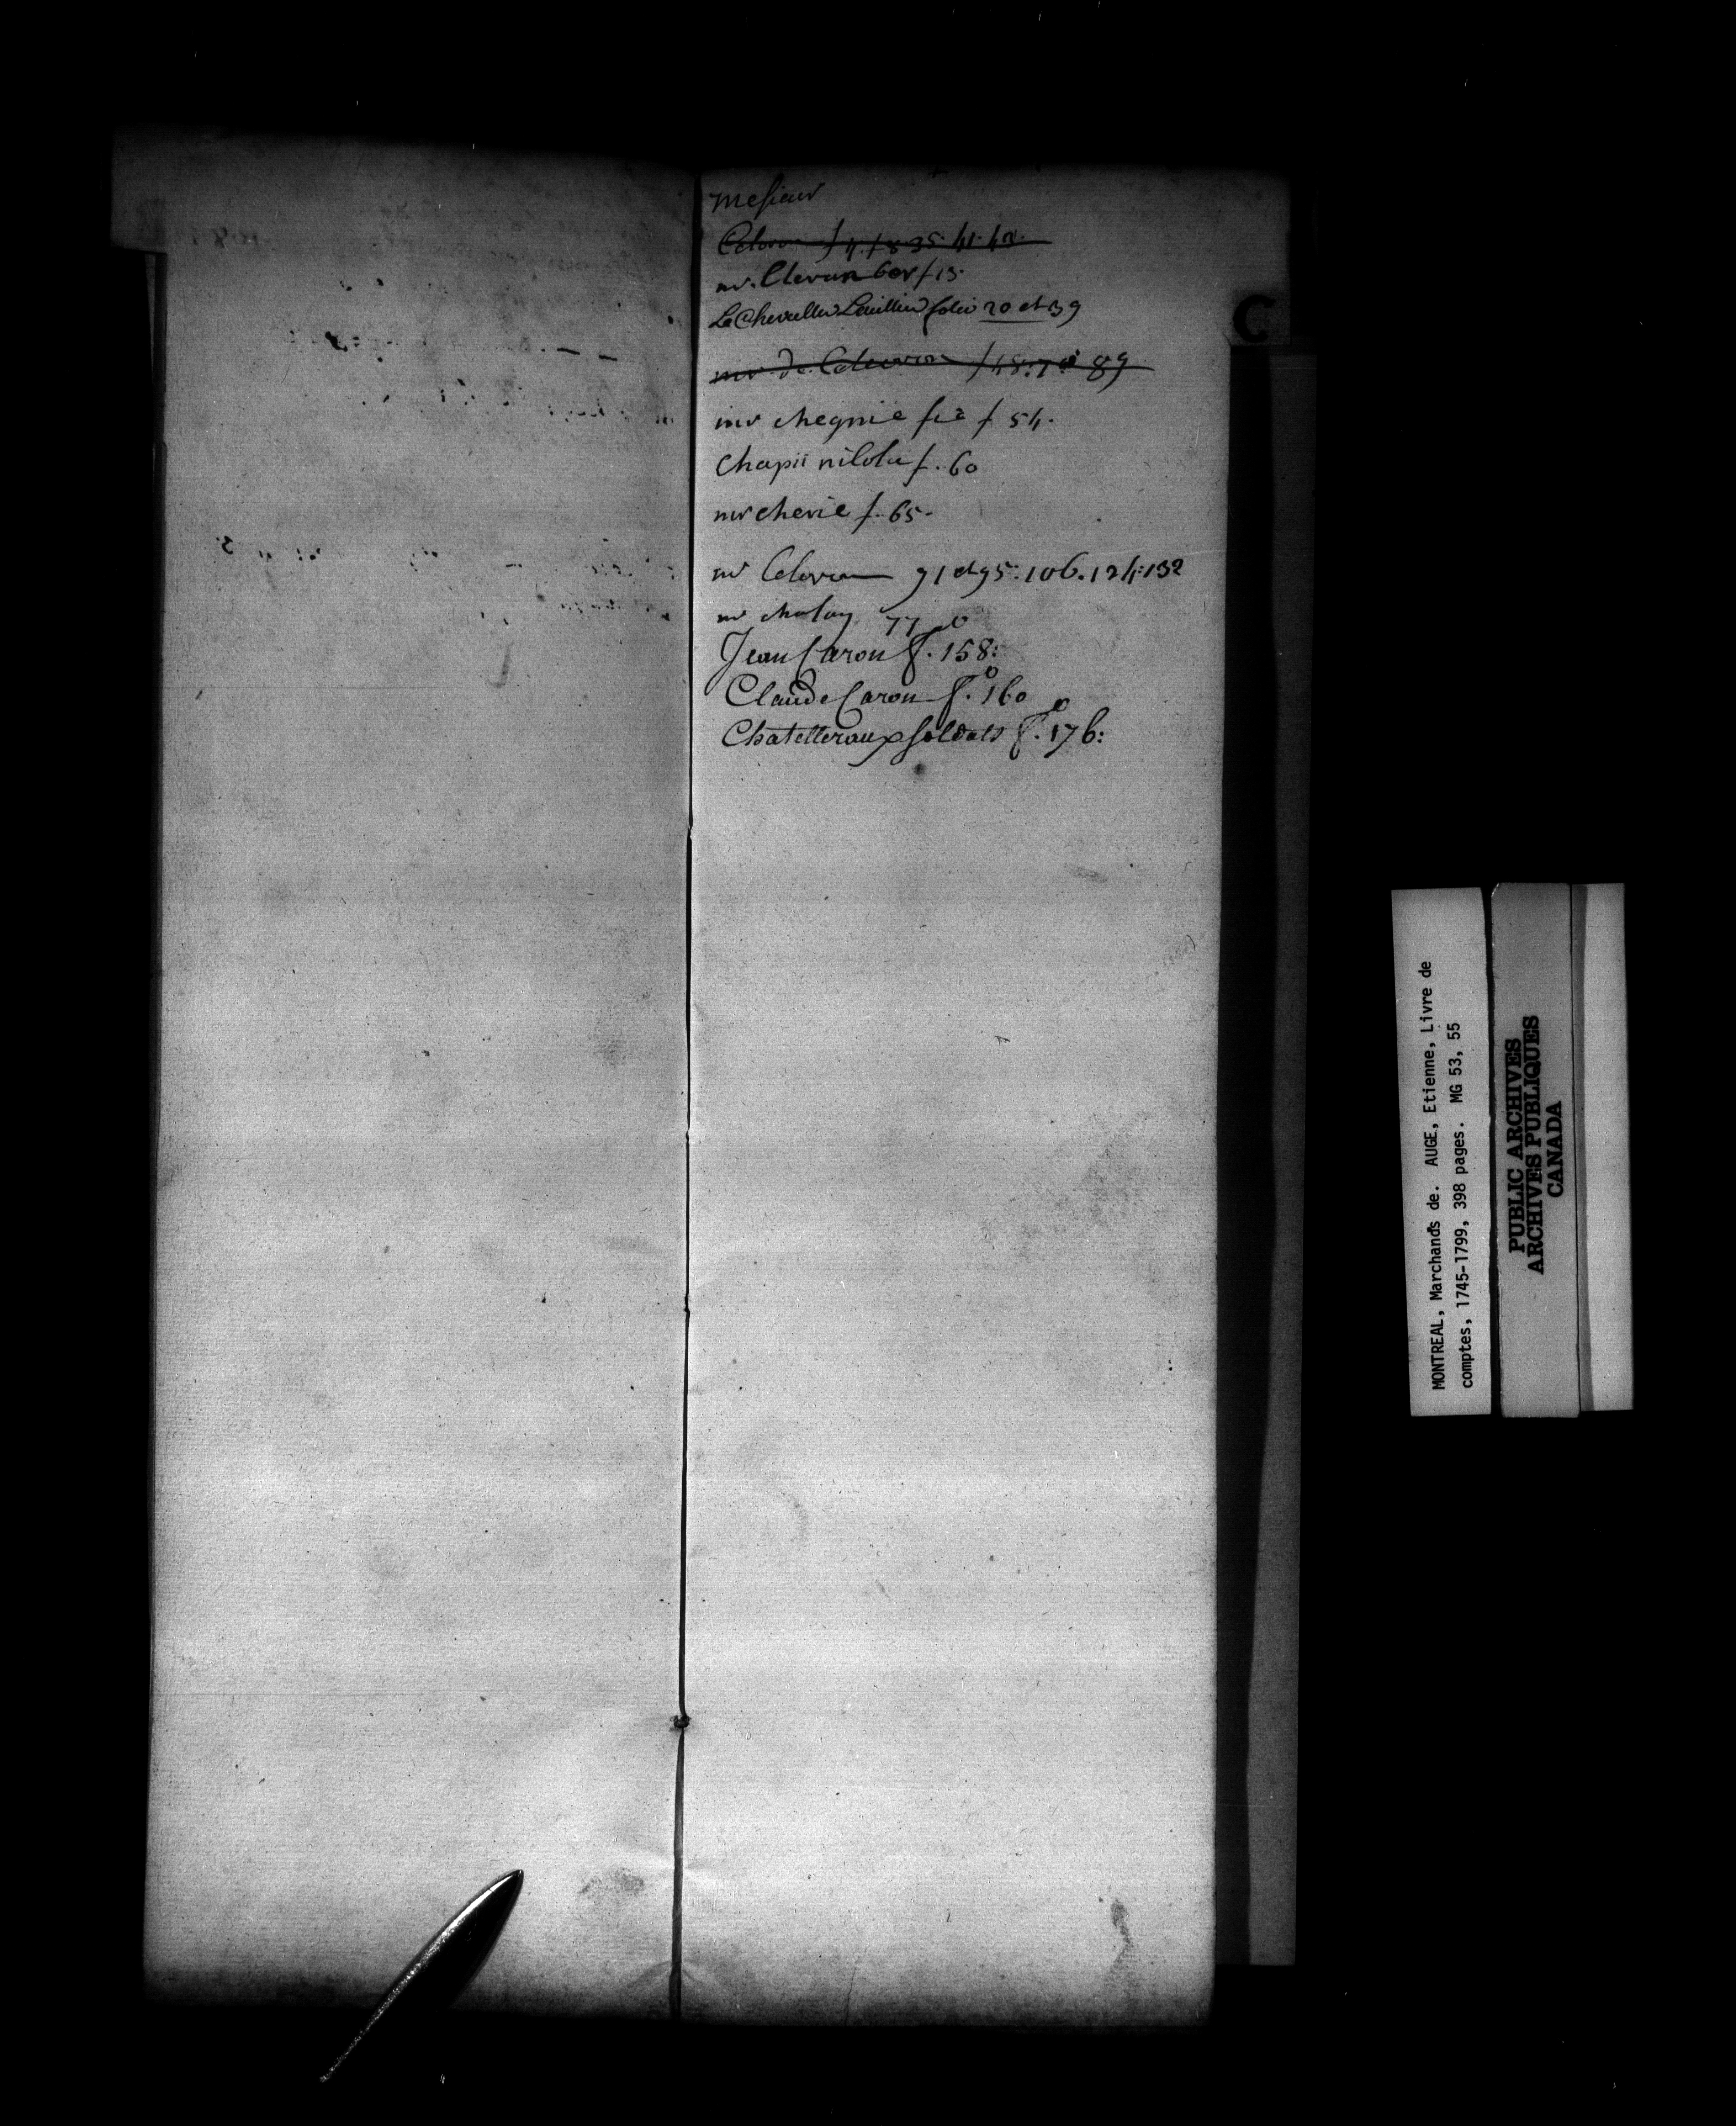 mesieur
Celoron f 4. f 8. 35. 41. 42.
mr. Cleran f 13.
Le Chevallier folio 20 et 39
mr. de Celeoron f 48: 7 89
mr chegnie f 54.
Chapii nilola f. 60
mr cherie f. 65.
mr Celoron 91 et 95. 106. 124: 132
mr chalou 77
Jean Caron fo. 158:
Claude Caron fo. 160
Chatelleraux soldats fo. 176:
C
MONTREAL, Marchands de. AUGE, Etienne, Livre de
comptes, 1745-1799, 398 pages. MG 53, 55
PUBLIC ARCHIVES
ARCHIVES PUBLIQUES
CANADA